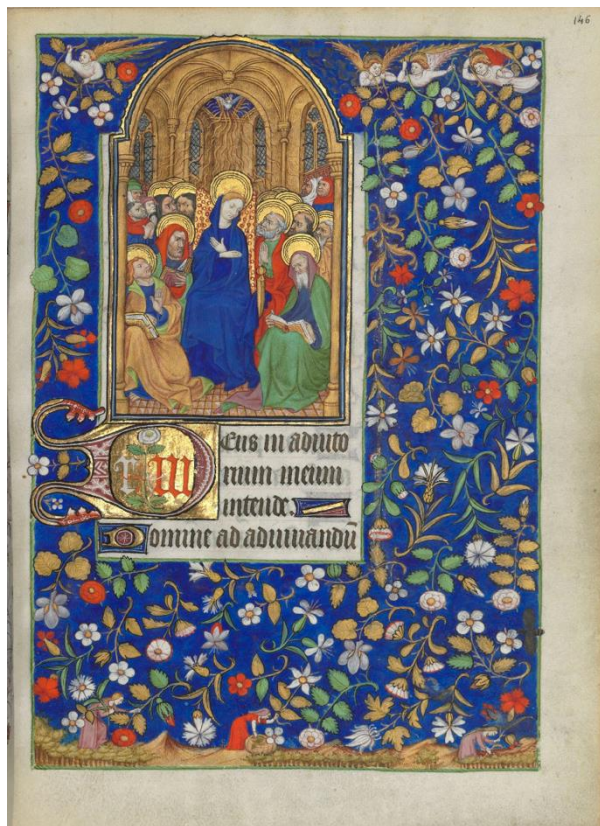 146
Deus in adiuto
rium meum
intende.
Domine ad adiuuandū